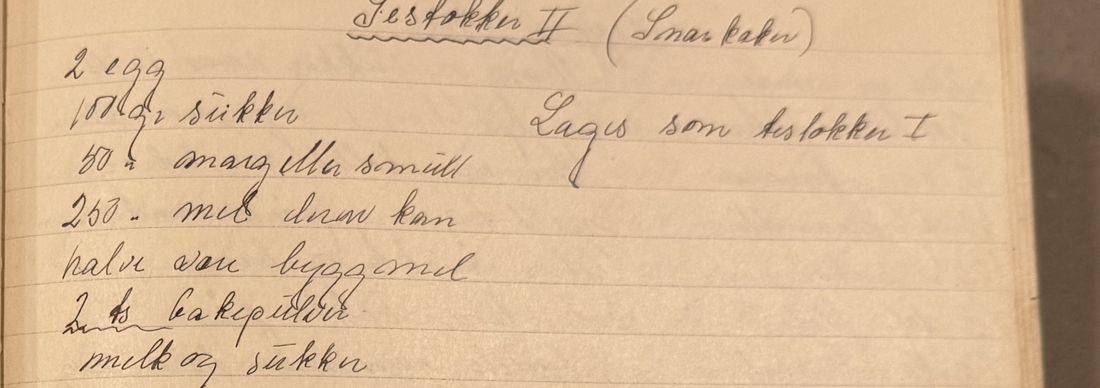 Testokker II (Snarkaker)
2 egg
100 gr sukker
Lages som testokker I
50 " marg eller smult
250 " mel derav kan
halve være byggmel
2 ts bakepulver
melk og sukker